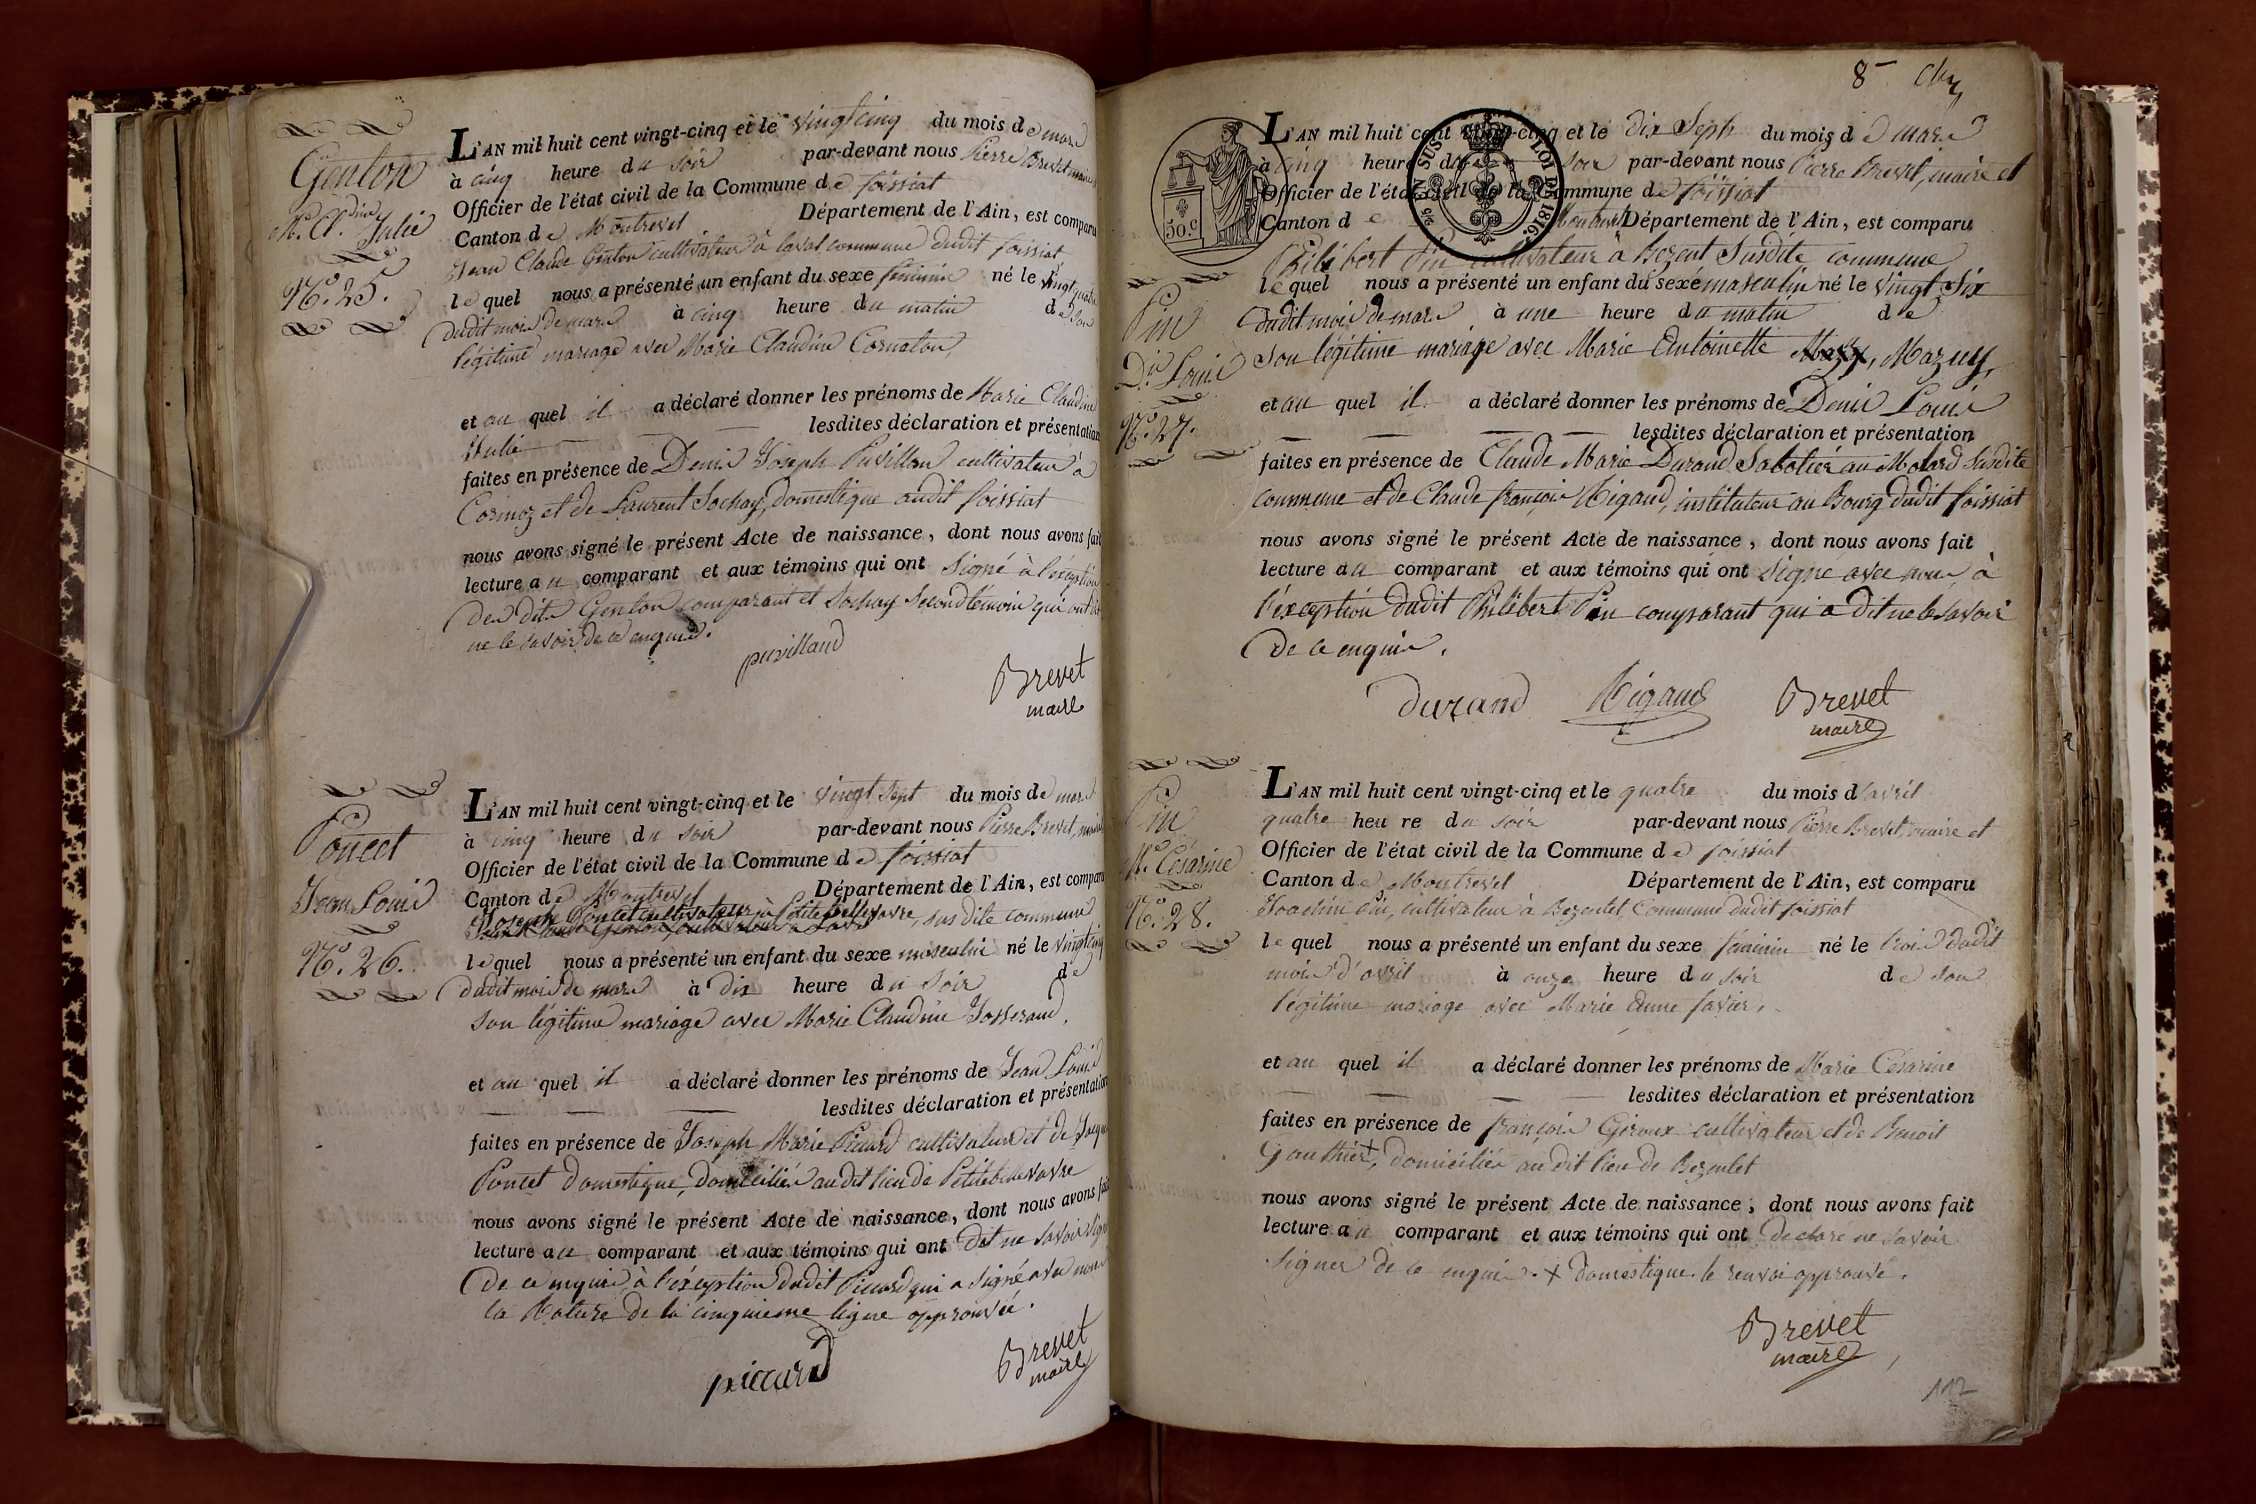 Genton
M.ie Cl.dine Julie
N.o 25.
L'AN mil huit cent vingt-cinq et le vingt cinq du mois de mars
à cinq heure du soir par-devant nous Pierre Brevet maire
Officier de l'état civil de la Commune de foissiat
Canton de Montrevel Département de l'Ain, est comparu
Jean Claude Genton cultivateur à laval commune dudit foissiat
lequel nous a présenté un enfant du sexe féminin né le vingt quatre
dudit mois de mars à cinq heure du matin de son
légitime mariage avec Marie Claudine Cornaton,
et au quel il a déclaré donner les prénoms de Marie Claudine
Julie lesdites déclaration et présentation
faites en présence de Denis Joseph Puvilland cultivateur à
Cormoz et de Laurent Sochay, domestique audit foissiat
nous avons signé le présent Acte de naissance, dont nous avons fait
lecture au comparant et aux témoins qui ont signé à l'éxception
des dits Genton comparant et Sochay second témoin qui ont dit
ne le savoir de ce enquis.
puvilland
Brevet
maire
Poncet
Jean Louis
N.o 26.
L'AN mil huit cent vingt-cinq et le vingt sept du mois de mars
à cinq heure du soir par-devant nous Pierre Brevet, maire
Officier de l'état civil de la Commune de foissiat
Canton de Montrevel Département de l'Ain, est comparu
Joseph Poncet cultivateur à Petitebellevavre, sus dite commune
Jean Claude Genton, cultivateur à Laval
lequel nous a présenté un enfant du sexe masculin né le vingt cinq
dudit mois de mars à dix heure du soir de
son légitime mariage avec Marie Claudine Josserand,
et au quel il a déclaré donner les prénoms de Jean Louis
lesdites déclaration et présentation
faites en présence de Joseph Marie Picard cultivateur et de Joseph
Poncet domestique, domiciliés au dit lieu de Petitebellevavre
nous avons signé le présent Acte de naissance, dont nous avons fait
lecture au comparant et aux témoins qui ont dit ne savoir signer
de ce enquis à l'éxception dudit Piccard qui a signé avec nous
la Rature de la cinquieme ligne approuvée.
piccard
Brevet
maire
8
L'AN mil huit cent vingt-cinq et le dix Sept du mois de mars
à cinq heure du soir par-devant nous Pierre Brevet, maire et
Officier de l'état civil de la Commune de foissiat
Canton de Montrevel Département de l'Ain, est comparu
50.c
LOI DE 1816.
Philibert Pin cultivateur à Bezent Susdite commune
lequel nous a présenté un enfant du sexe masculin né le vingt Six
dudit mois de mars à une heure du matin de
son légitime mariage avec Marie Antoinette Mazuy,
Pin
D.is Louis
N.o 27.
et au quel il a déclaré donner les prénoms de Denis Louis
lesdites déclaration et présentation
faites en présence de Claude Marie Durand Sabotier au Molard Susdite
commune et de Claude françois Rigaud, instituteur au Bourg dudit foissiat
nous avons signé le présent Acte de naissance, dont nous avons fait
lecture au comparant et aux témoins qui ont signé avec nous à
l'éxception dudit Philibert Pin comparant qui a dit ne le savoir
de ce enquis.
durand Rigaud Brevet
maire
Pin
M.ie Césarine
N.o 28.
L'AN mil huit cent vingt-cinq et le quatre du mois d'avril
quatre heure du soir par-devant nous Pierre Brevet, maire et
Officier de l'état civil de la Commune de foissiat
Canton de Montrevel Département de l'Ain, est comparu
Joachim Pin, cultivateur à Bezentet, Commune dudit foissiat
lequel nous a présenté un enfant du sexe féminin né le trois dudit
mois d'avril à onze heure du soir de son
légitime mariage avec Marie Anne favier,
et au quel il a déclaré donner les prénoms de Marie Césarine
lesdites déclaration et présentation
faites en présence de françois Giroux cultivateur et de Benoit
Gauthier +, domiciliés au dit lieu de Bezentet
nous avons signé le présent Acte de naissance, dont nous avons fait
lecture au comparant et aux témoins qui ont declaré ne savoir
signer de ce enquis. + domestique. le renvoi approuvé.
Brevet
maire
112